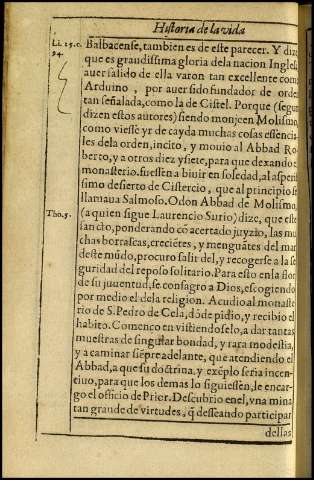 Historia de la vida
Li. 15. c.
94.
Balbacense, tambien es de este parecer. Y dize
que es grandissima gloria dela nacion Inglesa
auer salido de ella varon tan excellente como
Arduino, por auer sido fundador de orden
tan señalada, como la de Cistel. Porque (segun
dizen estos autores) siendo monje en Molismo,
como viesse yr de cayda muchas cosas essencia
les dela orden, incito, y mouio al Abbad Ro
berto, y a otros diez y siete, para que dexando el
monasterio. fuessen a biuir en soledad, al asperis
simo desierto de Cistercio, que al principio se
llamaua Salmoso. Odon Abbad de Molismo
Tho. 5.
(a quien sigue Laurencio Surio) dize, que este
sancto, ponderando cō acertado juyzio, las mu
chas borrascas, creciētes, y menguātes del mar
deste mūdo, procuro salir del, y recogerse a la se
guridad del reposo solitario. Para esto en la flor
de su juuentud, se consagro a Dios, escogiendo
por medio el dela religion. Acudio al monaste
rio de S. Pedro de Cela, dōde pidio, y recibio el
habito. Començo en vistiendoselo, a dar tantas
muestras de singular bondad, y rara modestia,
y a caminar siēpre adelante, que atendiendo el
Abbad, a que su doctrina, y exēplo seria incen
tiuo, para que los demas lo siguiessen, le encar
go el officio de Prior. Descubrio en el, vna mina
tan grande de virtudes, q̄ desseando participar
dellas